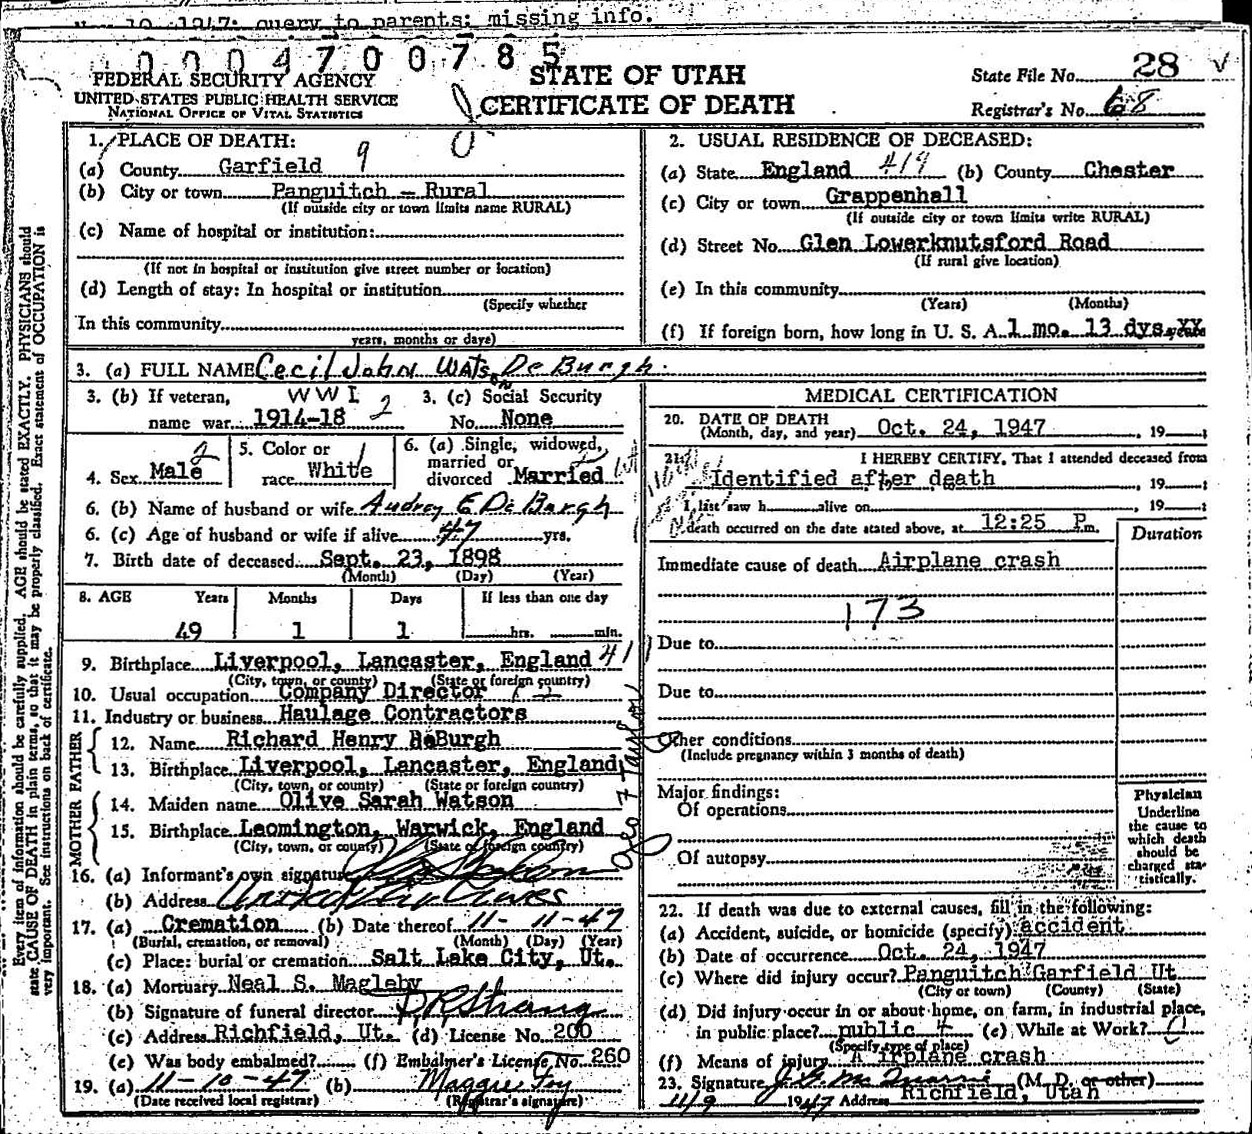 1947: query to parents: missing info.
0 0 0 4 7 0 0 7 8 5
FEDERAL SECURITY AGENCY
UNITED STATES PUBLIC HEALTH SERVICE
NATIONAL OFFICE OF VITAL STATISTICS
STATE OF UTAH
CERTIFICATE OF DEATH
State File No. 28
Registrar's No. 68
1. PLACE OF DEATH:
(a) County Garfield 9
(b) City or town Panguitch - Rural
(If outside city or town limits name RURAL)
(c) Name of hospital or institution:
(If not in hospital or institution give street number or location)
(d) Length of stay: In hospital or institution
(Specify whether
In this community
years, months or days)
2. USUAL RESIDENCE OF DECEASED:
(a) State England 419 (b) County Chester
(c) City or town Grappenhall
(If outside city or town limits write RURAL)
(d) Street No. Glen Lowerknutsford Road
(If rural give location)
(e) In this community
(Years) (Months)
(f) If foreign born, how long in U. S. A. 1 mo. 13 dys. XX years
3. (a) FULL NAME Cecil John Watson De Burgh
3. (b) If veteran, WWI 2
name war 1914-18
3. (c) Social Security
No. None
4. Sex Male
5. Color or
race White
6. (a) Single, widowed,
married or
divorced Married
6. (b) Name of husband or wife Audrey E De Burgh
6. (c) Age of husband or wife if alive 47 yrs.
7. Birth date of deceased Sept. 23, 1898
(Month) (Day) (Year)
8. AGE Years Months Days If less than one day
49 1 1 hrs. min.
9. Birthplace Liverpool, Lancaster, England 411
(City, town, or county) (State or foreign country)
10. Usual occupation Company Director
11. Industry or business Haulage Contractors
FATHER
12. Name Richard Henry DeBurgh
13. Birthplace Liverpool, Lancaster, England
(City, town, or county) (State or foreign country)
MOTHER
14. Maiden name Olive Sarah Watson
15. Birthplace Leomington, Warwick, England
(City, town, or county) (State or foreign country)
16. (a) Informant's own signature
(b) Address United
17. (a) Cremation (b) Date thereof 11-11-47
(Burial, cremation, or removal) (Month) (Day) (Year)
(c) Place: burial or cremation Salt Lake City, Ut.
18. (a) Mortuary Neal S. Magleby
(b) Signature of funeral director
(c) Address Richfield, Ut. (d) License No. 200
(e) Was body embalmed? (f) Embalmer's License No. 260
19. (a) 11-10-47 (b) Maggie Foy
(Date received local registrar) (Registrar's signature)
MEDICAL CERTIFICATION
20. DATE OF DEATH
(Month, day, and year) Oct. 24, 1947, 19
21. I HEREBY CERTIFY, That I attended deceased from
Identified after death, 19
I last saw h alive on, 19
death occurred on the date stated above, at 12:25 P m.
Duration
Immediate cause of death Airplane crash
173
Due to
Due to
Other conditions
(Include pregnancy within 3 months of death)
Major findings:
Of operations
Of autopsy
Physician
Underline
the cause to
which death
should be
charged sta-
tistically.
22. If death was due to external causes, fill in the following:
(a) Accident, suicide, or homicide (specify) accident
(b) Date of occurrence Oct. 24, 1947
(c) Where did injury occur? Panguitch Garfield Ut
(City or town) (County) (State)
(d) Did injury occur in or about home, on farm, in industrial place,
in public place? public (e) While at Work?
(Specify type of place)
(f) Means of injury Airplane crash
23. Signature (M. D. or other)
11/9 1947 Address Richfield, Utah
Every item of information should be carefully supplied. AGE should be stated EXACTLY. PHYSICIANS should
state CAUSE OF DEATH in plain terms, so that it may be properly classified. Exact statement of OCCUPATION is
very important. See instructions on back of certificate.